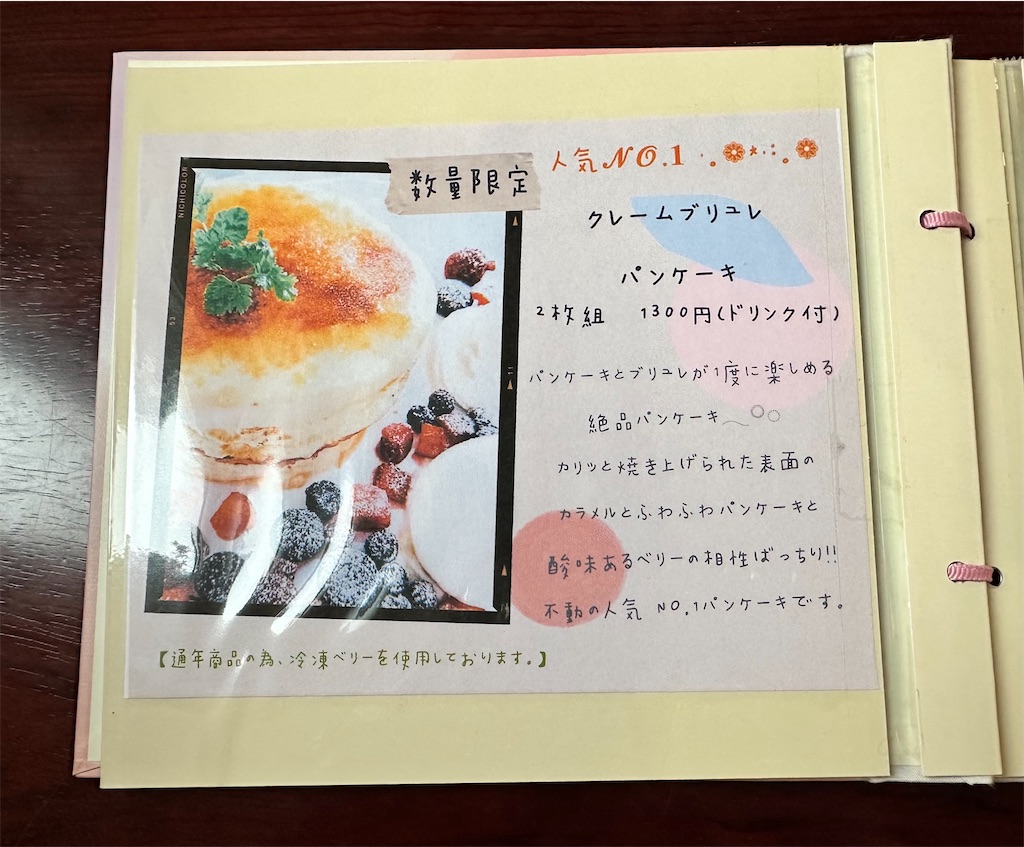 人気NO.1
数量限定
クレームブリュレ
パンケーキ
2枚組 1300円(ドリンク付)
パンケーキとブリュレが1度に楽しめる
絶品パンケーキ
カリッと焼き上げられた表面の
カラメルとふわふわパンケーキと
酸味あるベリーの相性ばっちり!!
不動の人気 NO.1パンケーキです。
【通年商品の為、冷凍ベリーを使用しております。】
NICHICOLOR
53
11